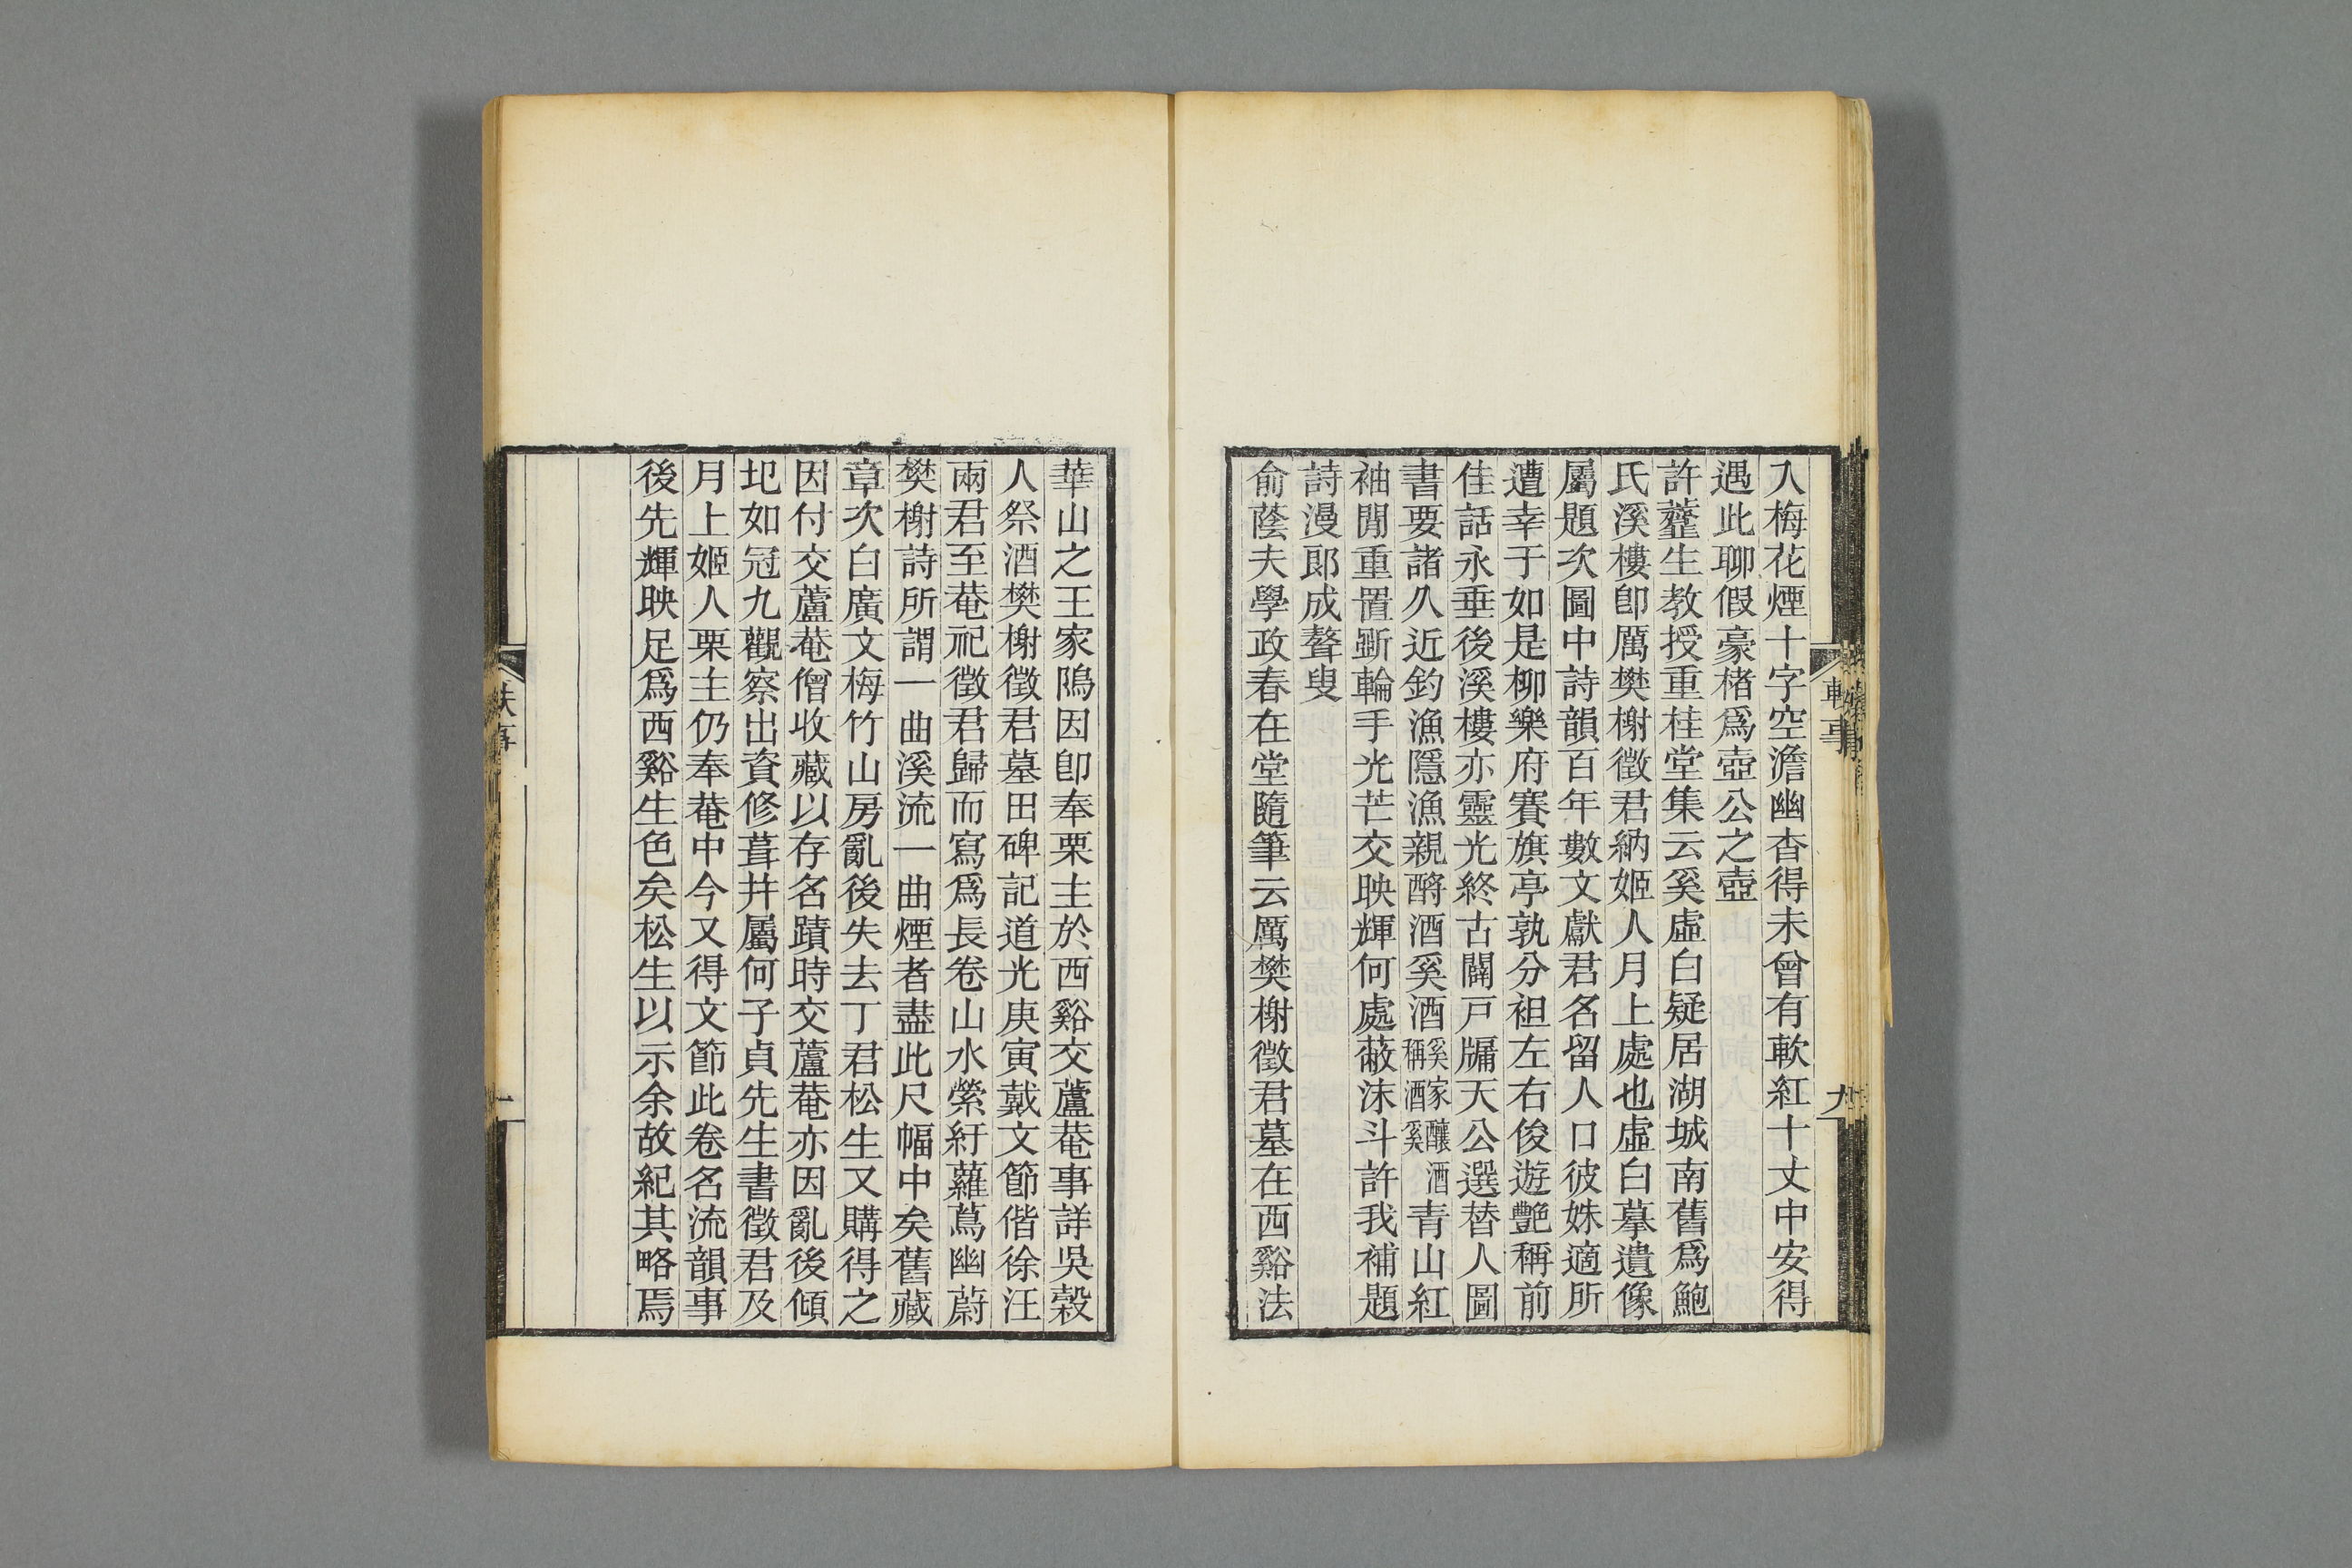 入梅花煙十字空澹幽杳得未曾有軟紅十丈中安得
遇此聊假豪楮爲壺公之壺
許虀生教授重桂堂集云奚虛白疑居湖城南舊爲鮑
氏溪樓卽厲樊榭徵君納姬人月上處也虛白摹遺像
屬題次圖中詩韻百年數文獻君名留人口彼姝適所
遭幸于如是柳樂府賽旗亭孰分袒左右俊遊艷稱前
佳話永垂後溪樓亦靈光終古闢戸牖天公選替人圖
書要諸久近釣漁隱漁親酹酒奚酒奚家釀酒稱酒奚青山紅
袖閒重置斲輪手光芒交映輝何處蔽沫斗許我補題
詩漫郞成聱叟
俞蔭夫學政春在堂隨筆云厲樊榭徵君墓在西谿法
華山之王家隖因卽奉栗主於西谿交蘆菴事詳吳穀
人祭酒樊榭徵君墓田碑記道光庚寅戴文節偕徐汪
兩君至菴祀徵君歸而寫爲長卷山水縈紆蘿蔦幽蔚
樊榭詩所謂一曲溪流一曲煙者盡此尺幅中矣舊藏
章次白廣文梅竹山房亂後失去丁君松生又購得之
因付交蘆菴僧收藏以存名蹟時交蘆菴亦因亂後傾
圮如冠九觀察出資修葺幷屬何子貞先生書徵君及
月上姬人栗主仍奉菴中今又得文節此卷名流韻事
後先輝映足爲西谿生色矣松生以示余故紀其略焉